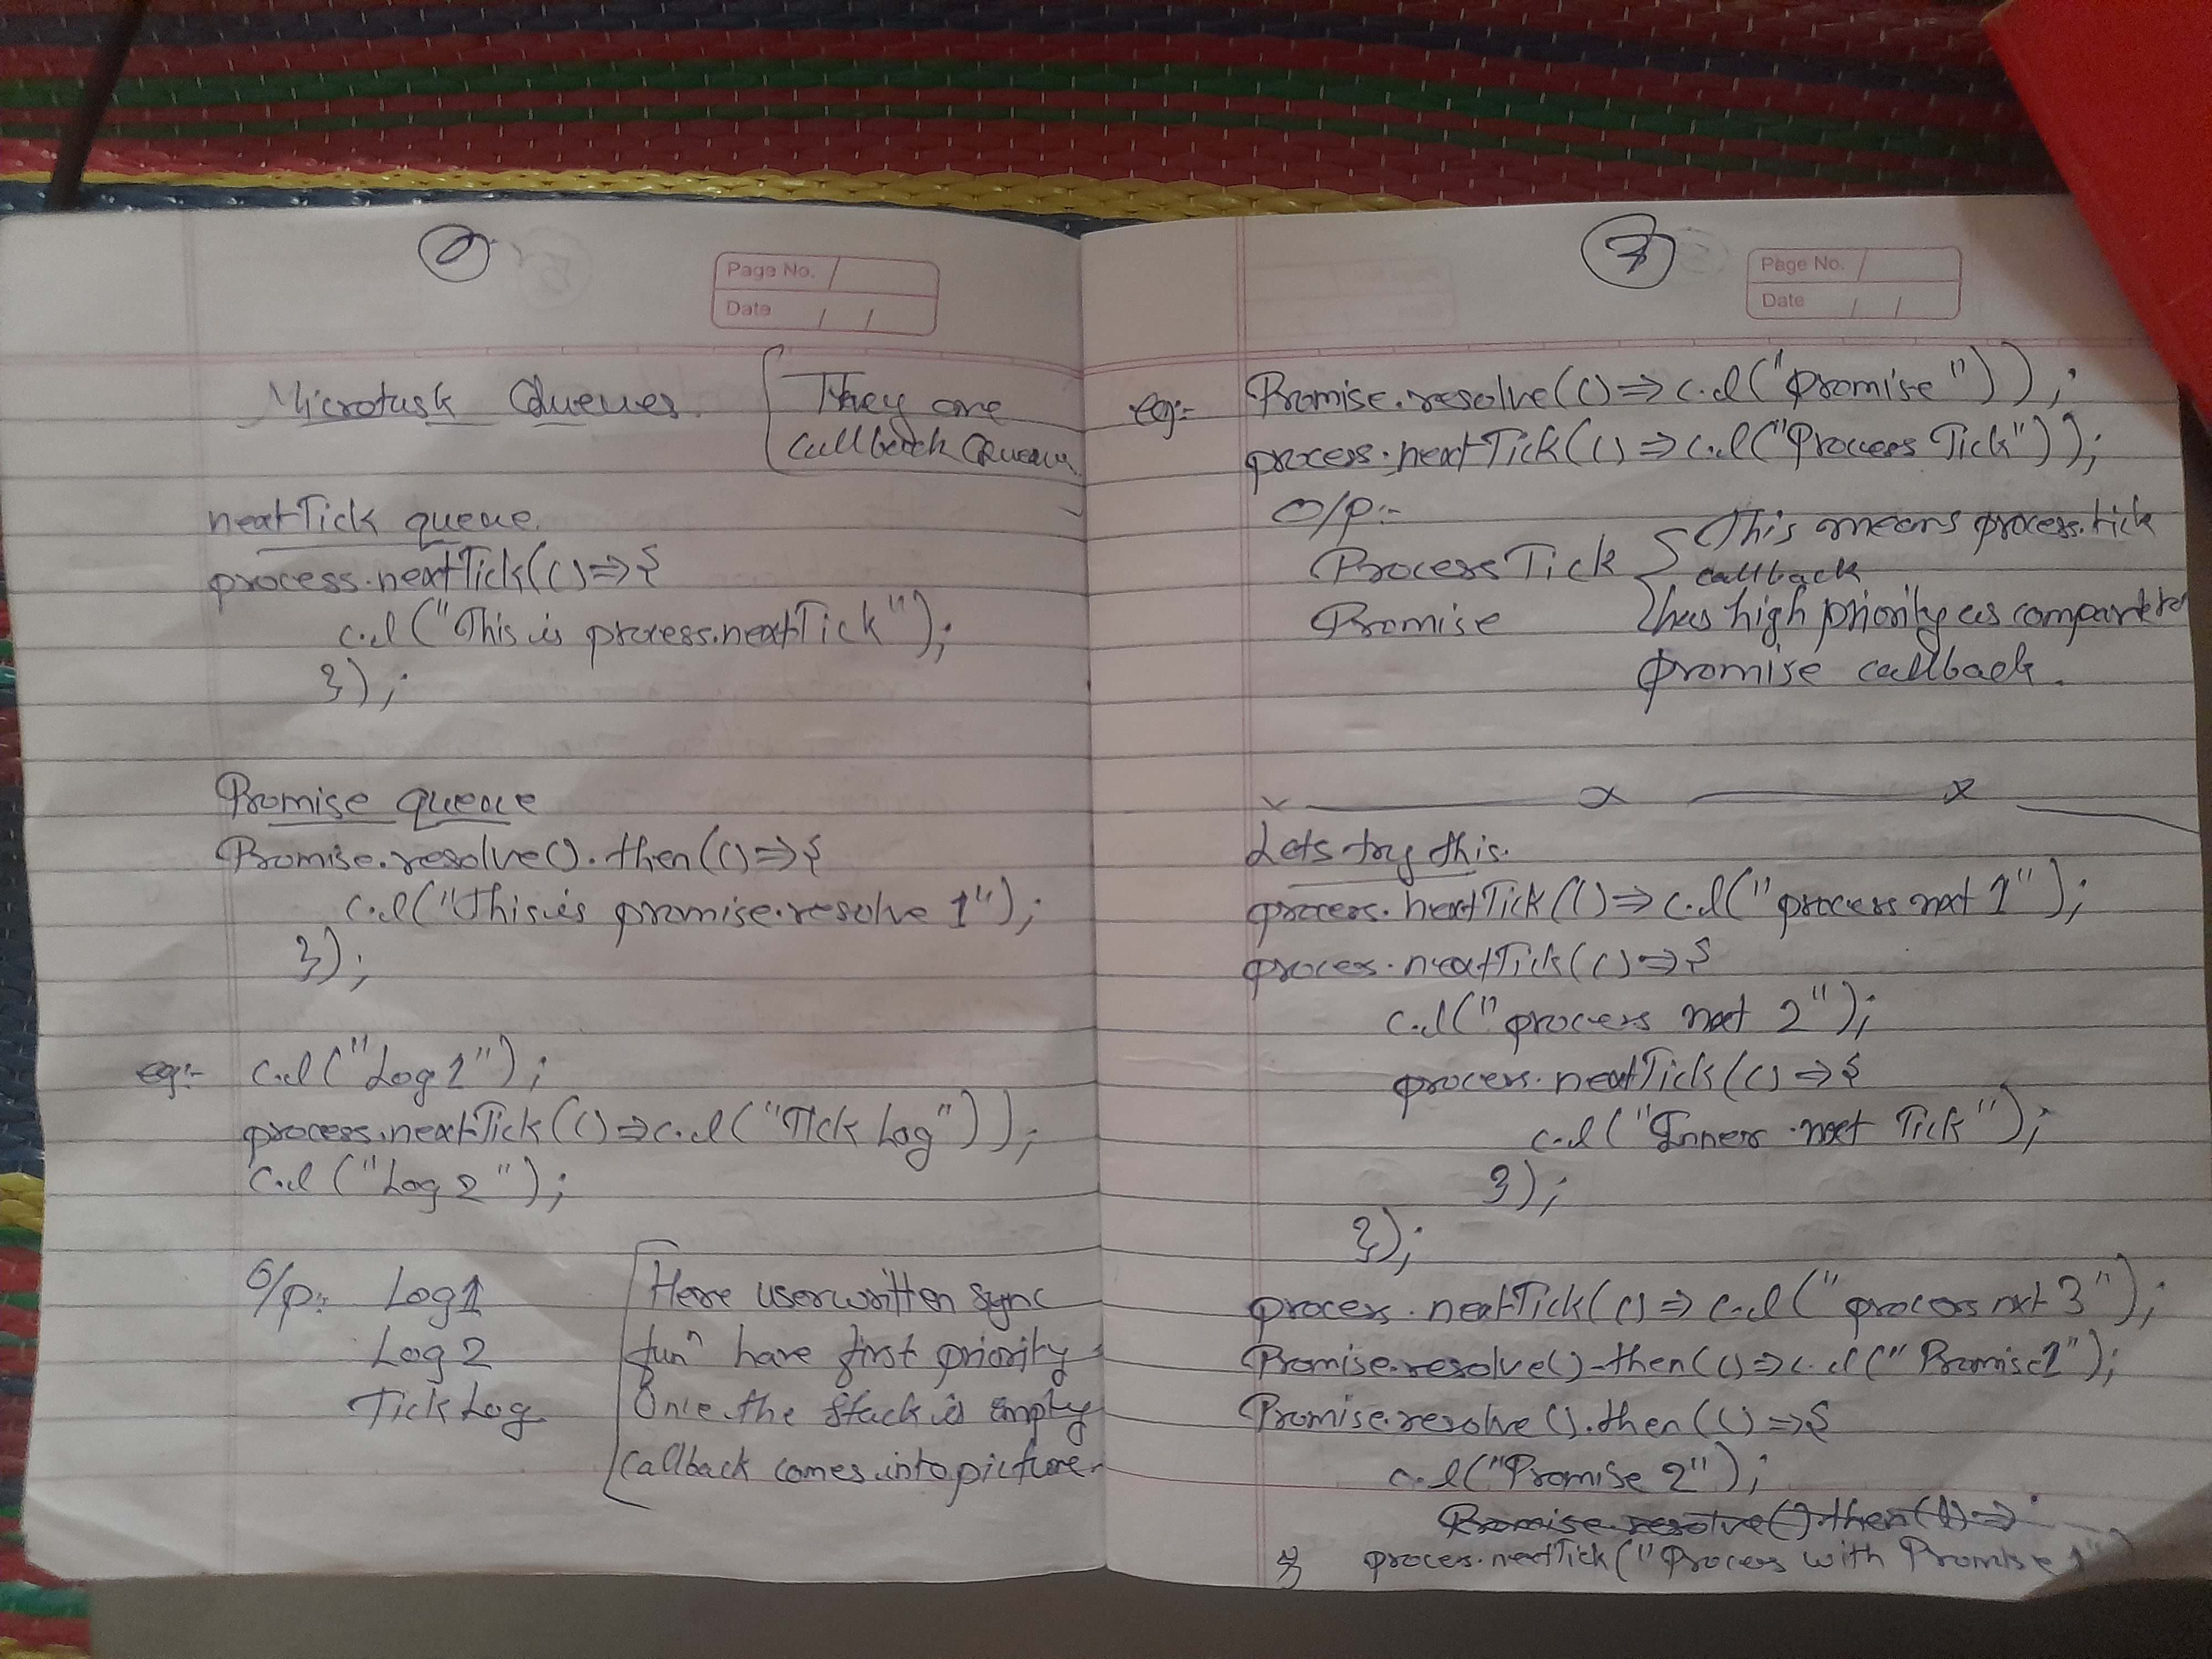 Page No.
Date / /
Microtask Queues
They are
callback Queue
nextTick queue
process.nextTick(()=>{
c.l("This is process.nextTick");
});
Promise queue
Promise.resolve().then(()=>{
c.l("This is promise.resolve 1");
});
eg:- c.l("Log 1");
process.nextTick(()=>c.l("Tick Log"));
c.l("Log 2");
O/p:- Log 1
Log 2
Tick Log
Here userwritten sync
funⁿ have first priority
Once the stack is empty
callback comes into picture.
7
Page No.
Date / /
eg:- Promise.resolve(()=>c.l("Promise"));
process.nextTick(()=>c.l("Process Tick"));
O/p:-
Process Tick
Promise
This means process.tick
callback
has high priority as compare to
promise callback.
x x
Lets try this.
process.nextTick(()=>c.l("process nxt 1");
proces.nextTick(()=>{
c.l("process nxt 2");
process.nextTick(()=>{
c.l("Inner nxt Tick");
});
});
process.nextTick(()=>c.l("process nxt 3");
Promise.resolve().then(()=>c.l("Promise1");
Promise.resolve().then(()=>{
c.l("Promise 2");
Promise.resolve().then(()=>
proces.nextTick("Process with Promise 1")